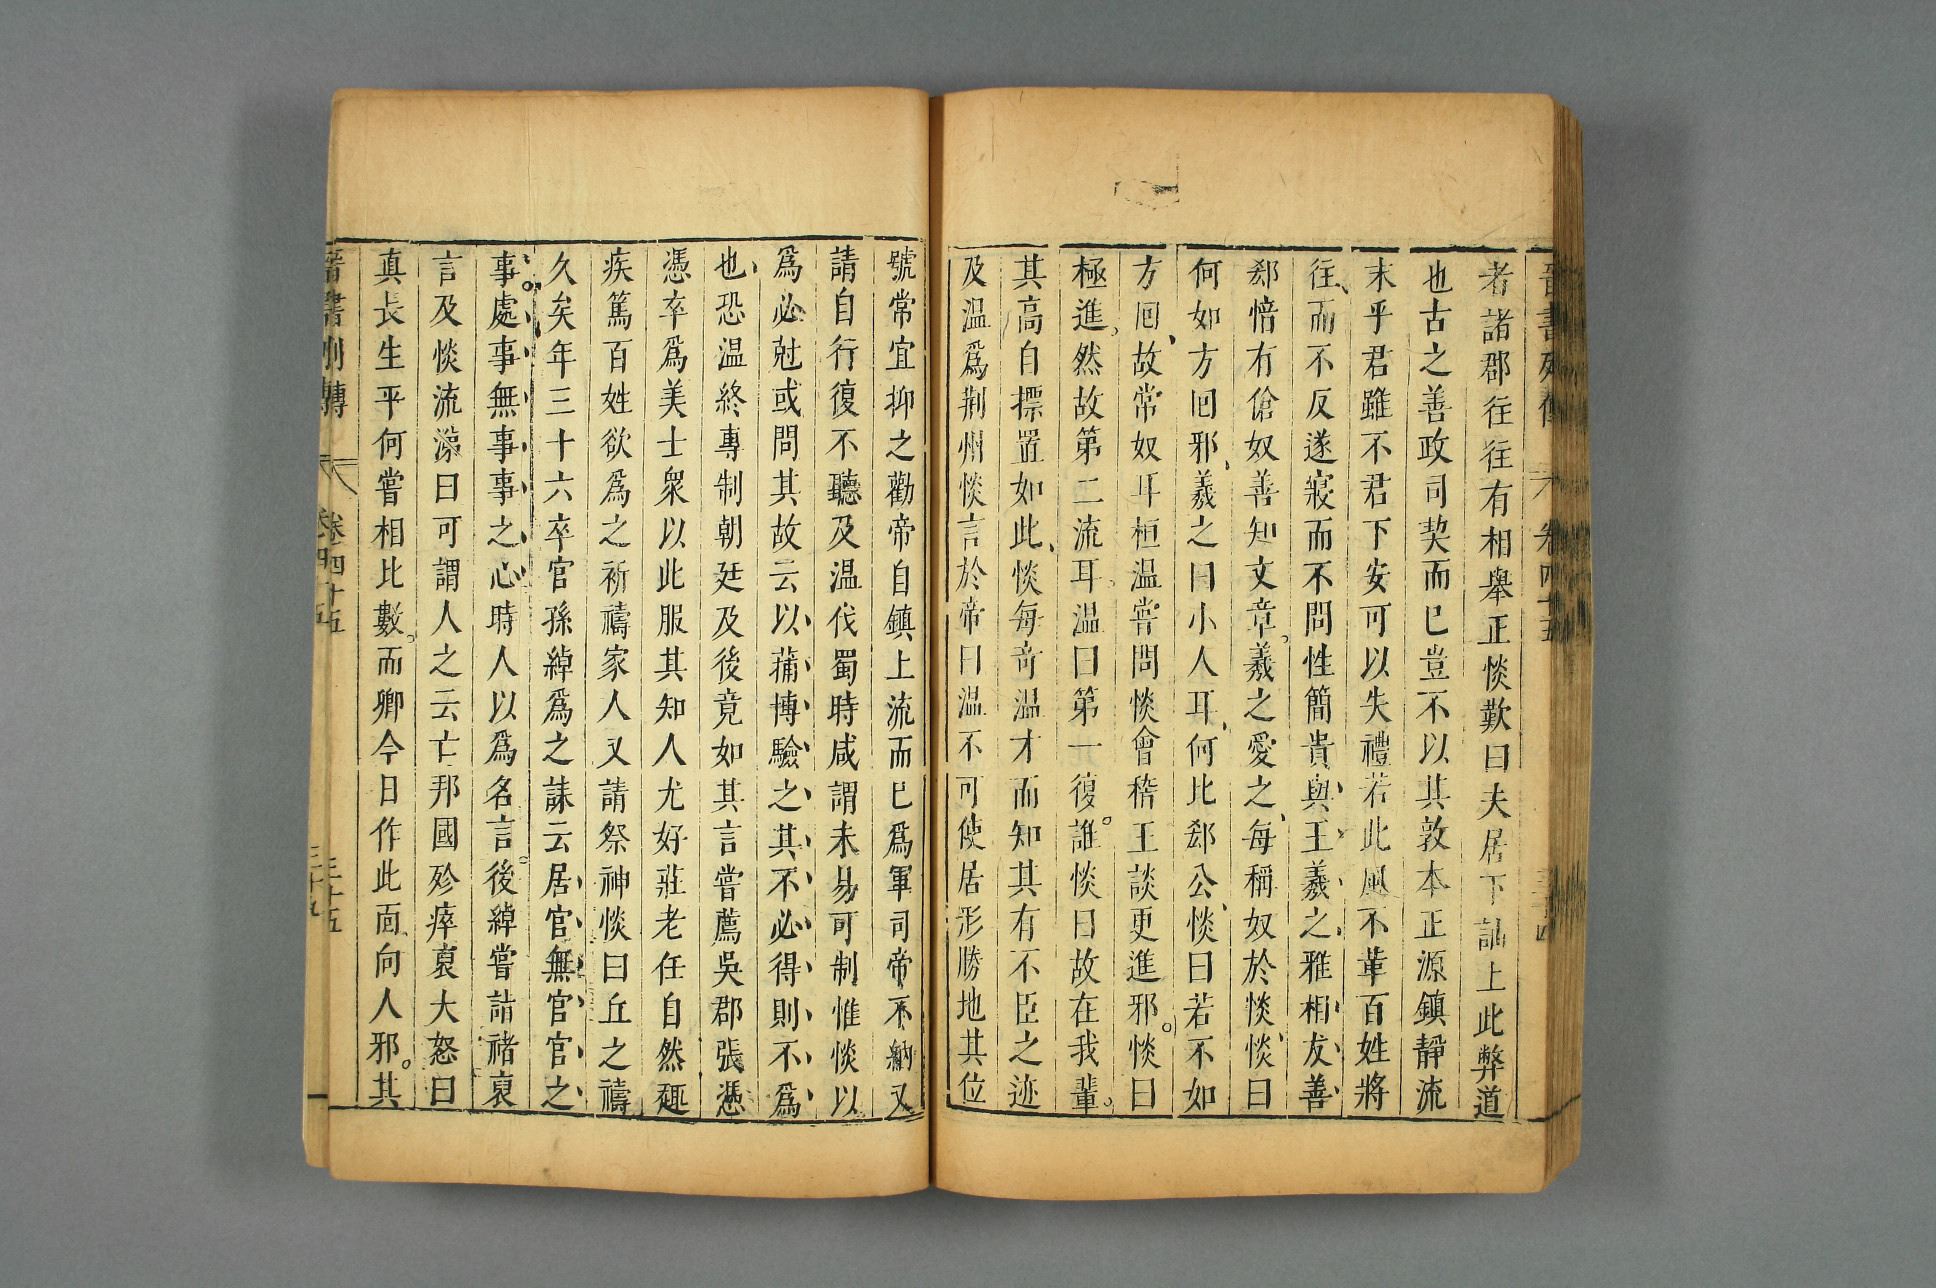 晉書列傳 卷四十五 三十四
者諸郡往往有相舉正惔歎曰夫居下訕上此弊道
也古之善政司契而已豈不以其敦本正源鎮靜流
末乎君雖不君下安可以失禮若此風不革百姓將
往而不反遂寢而不問性簡貴與王羲之雅相友善
郄愔有傖奴善知文章羲之愛之每稱奴於惔惔曰
何如方回邪羲之曰小人耳何比郄公惔曰若不如
方回故常奴耳桓温嘗問惔會稽王談更進邪惔曰
極進然故第二流耳温曰第一復誰惔曰故在我輩
其高自摽置如此惔每奇温才而知其有不臣之迹
及温爲荆州惔言於帝曰温不可使居形勝地其位
號常宜抑之勸帝自鎮上流而已爲軍司帝不納又
請自行復不聽及温伐蜀時咸謂未易可制惟惔以
爲必尅或問其故云以蒱博驗之其不必得則不爲
也恐温終專制朝廷及後竟如其言嘗薦吳郡張憑
憑卒爲美士衆以此服其知人尤好莊老任自然趣
疾篤百姓欲爲之祈禱家人又請祭神惔曰丘之禱
久矣年三十六卒官孫綽爲之誄云居官無官官之
事處事無事事之心時人以爲名言後綽嘗詣禇裒
言及惔流涕曰可謂人之云亡邦國殄瘁裒大怒曰
真長生平何嘗相比數而卿今日作此面向人邪其
晉書列傳 卷四十五 三十五